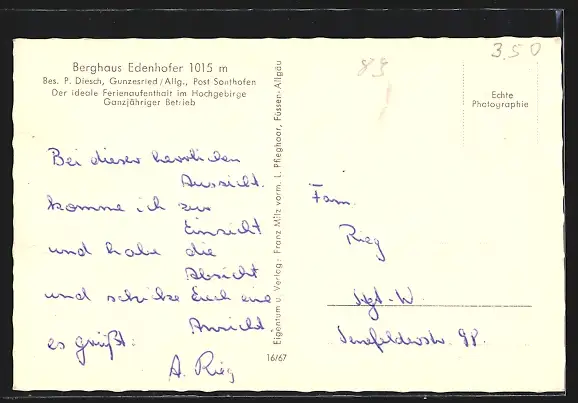 Berghaus Edenhofer 1015 m
Bes. P. Diesch, Gunzesried/Allg., Post Sonthofen
Der ideale Ferienaufenthalt im Hochgebirge
Ganzjähriger Betrieb
Bei dieser herrlichen
Aussicht.
komme ich zur
Einsicht
und habe die
Absicht
und schicke Euch eine
Ansicht.
es grüßt:
A. Rieg
Eigentum u. Verlag: Franz Milz vorm. L. Pfleghaar, Füssen-Allgäu
16/67
89
3,50
Echte
Photographie
Fam.
Rieg
Stgt-W.
Senefelderstr. 98.